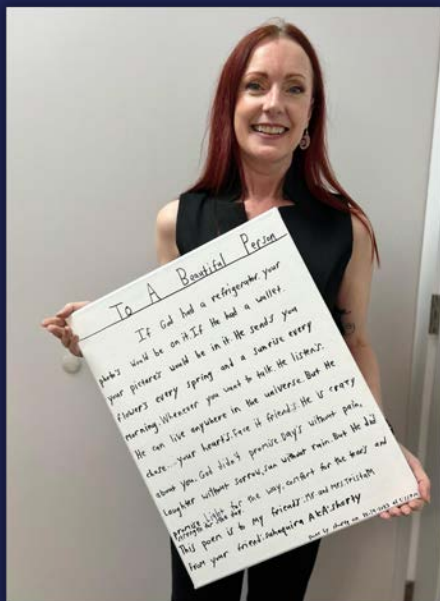 To A Beautiful Person
If God had a refrigerator your
photo's would be on it. If He had a wallet.
your picture's would be in it. He send's you
flowers every spring and a sunrise every
morning. Whenever you want to talk. He listen's.
He can live anywhere in the universe. But He
chose... your heart's. Face it friend's. He is crazy
about you. God didn't promise Day's without pain,
Laughter without sorrow, sun without rain. But He did
promise Light for the way, comfort for the tears and
strength for the day.
This poem is to my friend's. Mr. and Mrs. Tristaln
from your friend: Sahaquira A.K.A: shorty
Done by shorty on